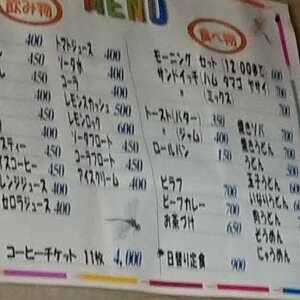 MENU
飲み物
400
450
450
400
450
スティー 450
イスコーヒー 450
レンジジュース 400
セロラジュース 400
トマトジュース 400
ソーダ水 400
コーラ 400
レモンスカッシュ 500
レモンロック 600
ソーダフロート 450
コーラフロート 450
アイスクリーム 400
コーヒーチケット 11枚 4,000
食べ物
モーニング セット (12:00まで) 600
サンドイッチ (ハム タマゴ ヤサイ) 700
〃 (ミックス) 700
トースト(バター) 350
〃 (ジャム) 400
ロールパン 150
ピラフ 700
ビーフカレー 700
お茶づけ 650
焼きソバ
焼きうどん
うどん
玉子うどん
いなりうどん
肉うどん
そうめん
にゅうめん
日替り定食 900